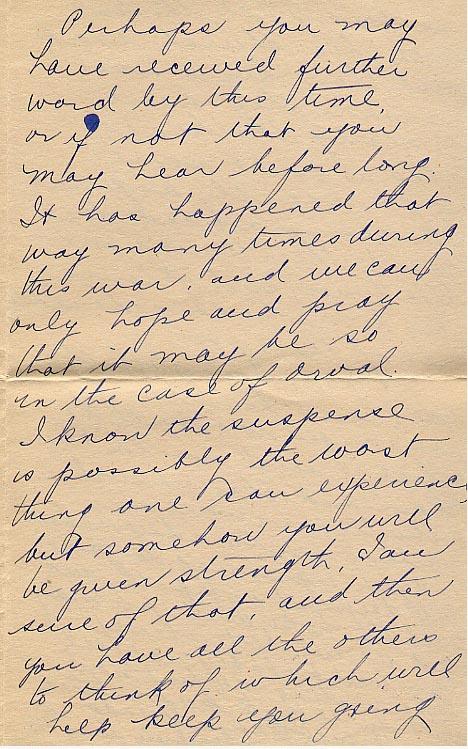 Perhaps you may
have received further
word by this time,
or if not that you
may hear before long.
It has happened that
way many times during
this war, and we can
only hope and pray
that it may be so
in the case of Orval.
I know the suspense
is possibly the worst
thing one can experience
but somehow you will
be given strength, I am
sure of that, and then
you have all the others
to think of which will
help keep you going